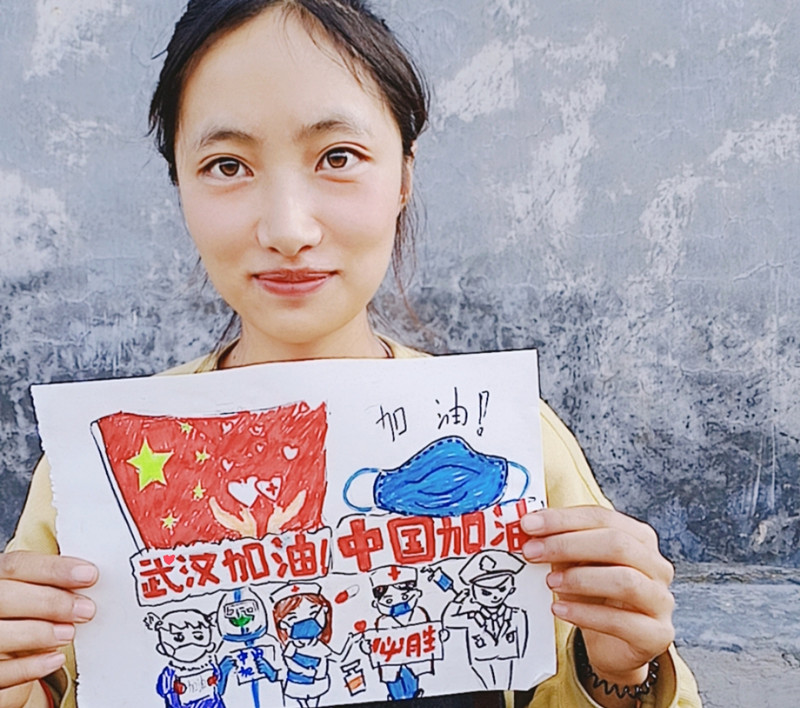 加油!
武汉加油!中国加油
加油
中国
加
必胜